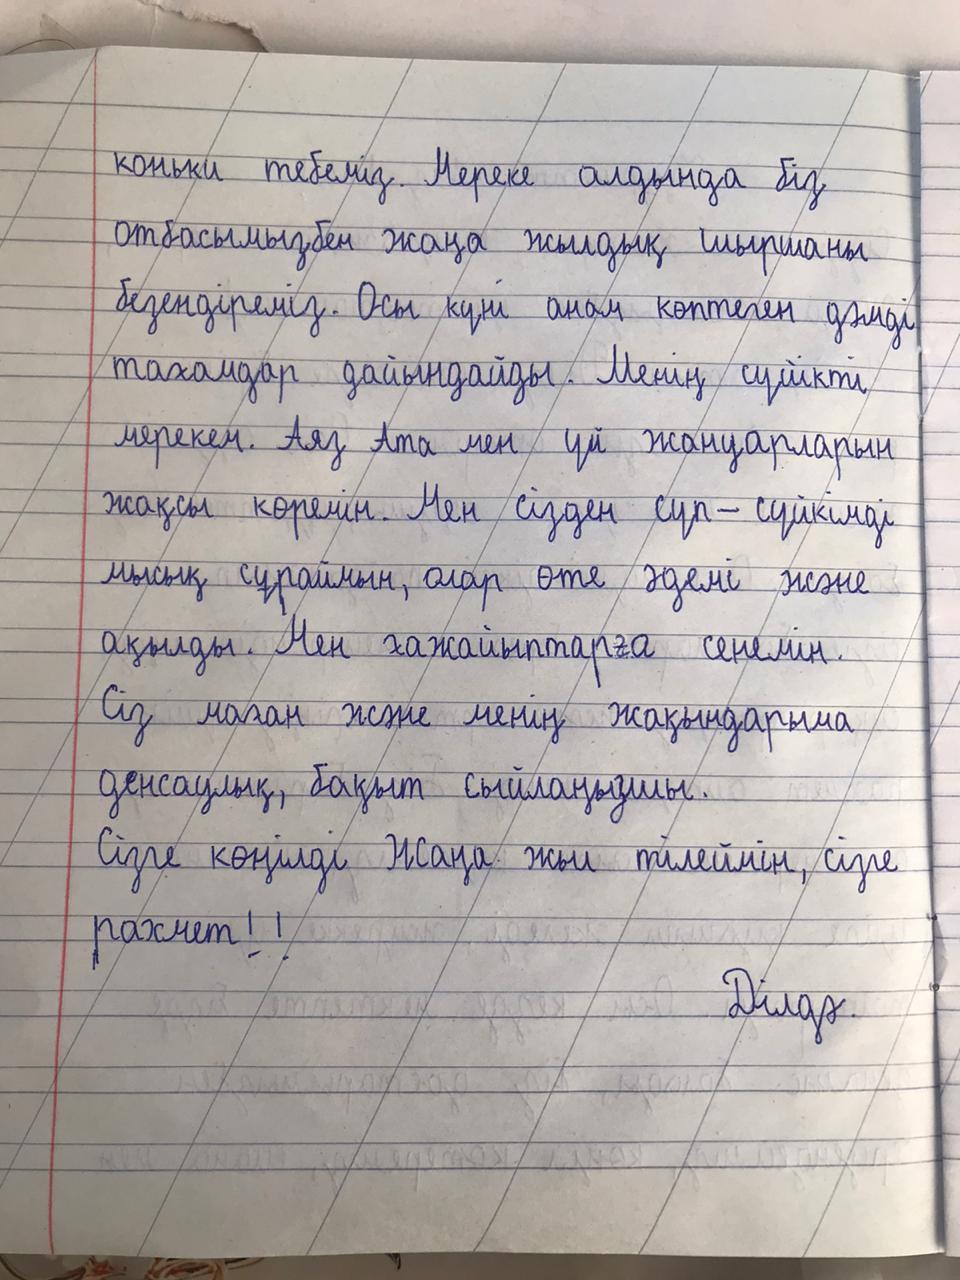 коньки тебеміз. Мереке алдында біз
отбасымызбен жаңа жылдық шыршаны
безендіреміз. Осы күні анам көптеген дәмді
тағамдар дайындайды. Менің сүйікті
мерекем. Аяз Ата мен үй жануарларын
жақсы көремін. Мен сізден сүп-сүйкімді
мысық сұраймын, олар өте әдемі және
ақылды. Мен ғажайыптарға сенемін.
Сіз маған және менің жақындарыма
денсаулық, бақыт сыйлаңызшы.
Сізге көңілді Жаңа жыл тілеймін, сізге
рахмет!!
Ділдә.